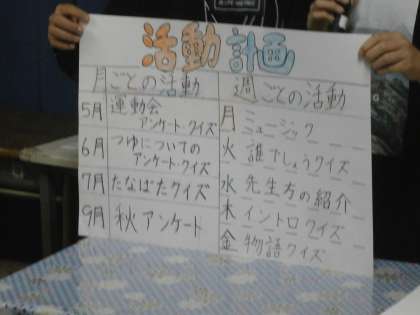 活動計画
月ごとの活動
5月 運動会
アンケート・クイズ
6月 つゆについての
アンケート・クイズ
7月 たなばたクイズ
9月 秋アンケート
週ごとの活動
月 ミュージック
火 誰でしょうクイズ
水 先生方の紹介
木 イントロクイズ
金 物語クイズ